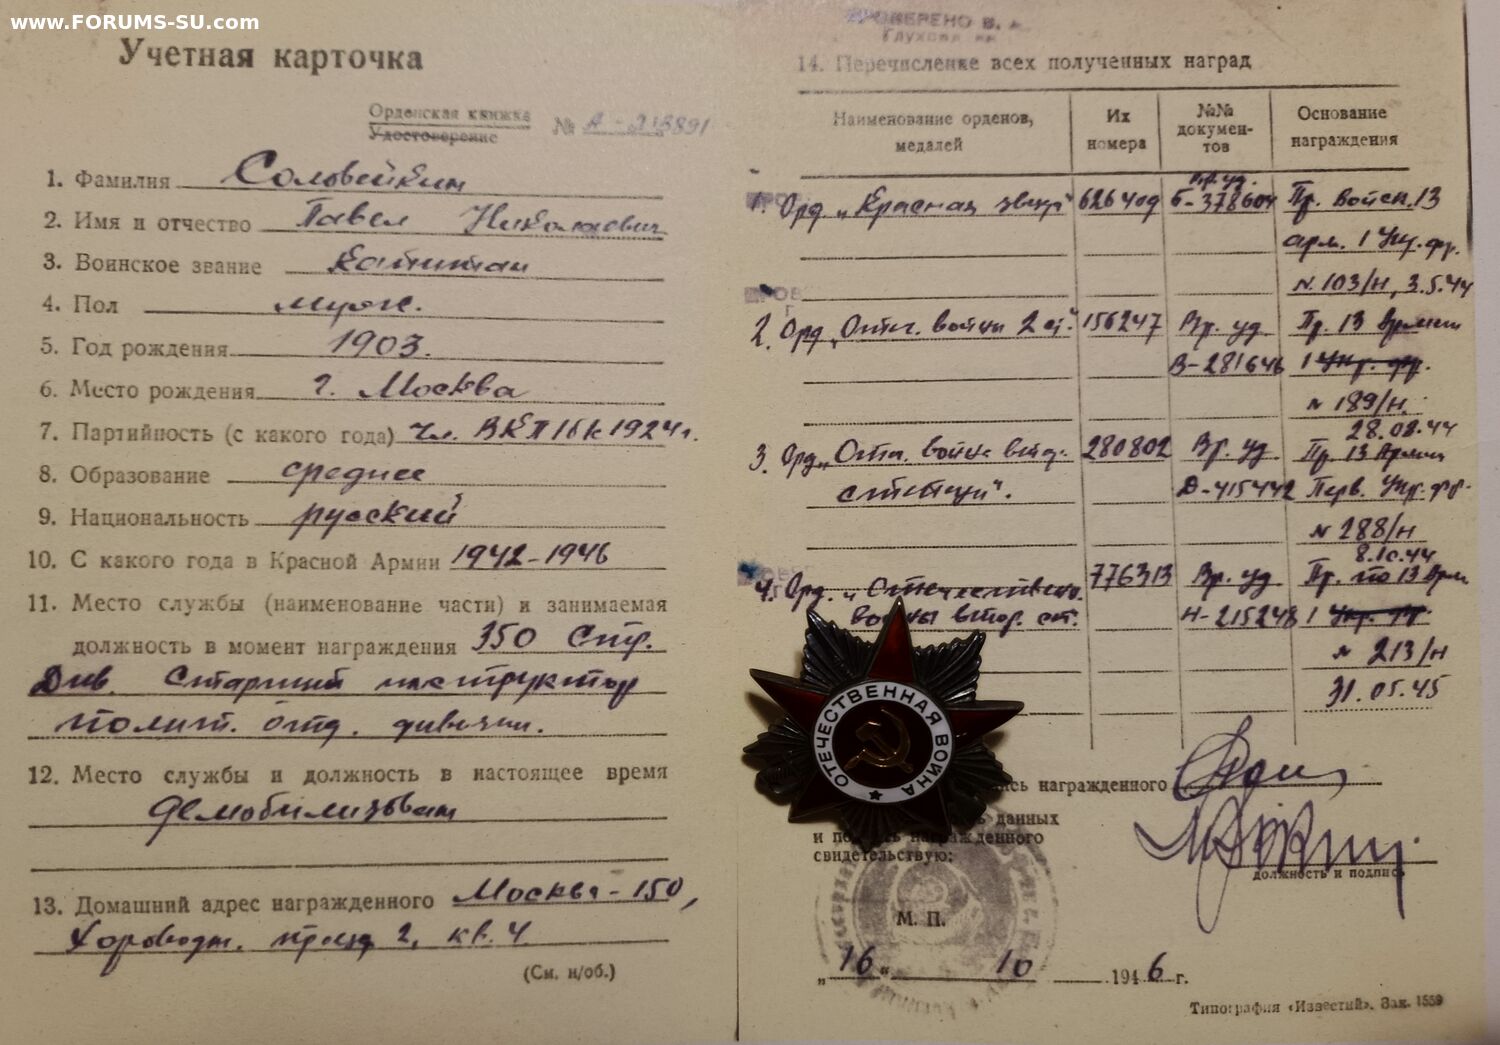 www.FORUMS-SU.com
Учетная карточка
Орденская книжка
Удостоверение
№ А-213891
1. Фамилия Соловейкин
2. Имя и отчество Павел Николаевич
3. Воинское звание Капитан
4. Пол муж.
5. Год рождения 1903.
6. Место рождения г. Москва
7. Партийность (с какого года) чл. ВКП/б к 1924 г.
8. Образование среднее
9. Национальность русский
10. С какого года в Красной Армии 1942-1946
11. Место службы (наименование части) и занимаемая
должность в момент награждения 350 Стр.
Див. Старший инструктор
полит. отд. дивизии.
12. Место службы и должность в настоящее время
Демобилизован
13. Домашний адрес награжденного Москва-150,
Хороводн. проезд 2, кв. 4
(См. н/об.)
ПРОВЕРЕНО В.
14. Перечисление всех полученных наград
Наименование орденов, медалей
Их номера
№№ документов
Основание награждения
1. Орд. „Красная звезда" 626409 Вр. уд. Б-378604 Пр. войск. 13
арм. 1 Укр. фр.
N. 103/н, 3.5.44
2. Орд „Отеч. войны 2 ст." 156247 Вр. уд Пр. 13 Армии
В-281646 1 Укр. фр.
N 189/н.
28.08.44
3. Орд „Оте. войны втор. 280802 Вр. уд. Пр. 13 Армии
степени". Д-415442 Перв. Укр. фр.
N 288/н
8.10.44
4. Орд. „Отечественно. 776313 Вр. уд Пр. по 13 Арм
войны втор. ст. Н-215248 1 Укр. фр
N 213/н
31.05.45
ОТЕЧЕСТВЕННАЯ ВОЙНА
сь награжденного
данных
и подпись награжденного
свидетельствую:
должность и подпись
М. П.
„16" 10 1946 г.
Типография «Известий». Зак. 1559